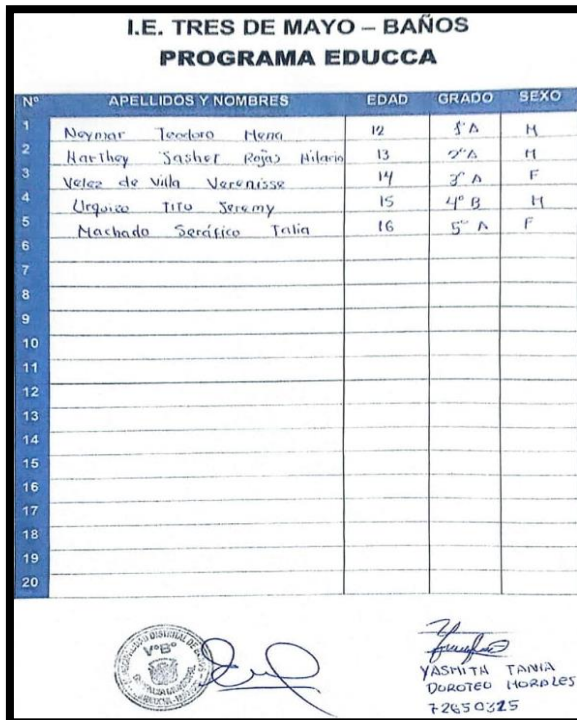 I.E. TRES DE MAYO – BAÑOS
PROGRAMA EDUCCA
N° APELLIDOS Y NOMBRES EDAD GRADO SEXO
1 Neymar Teodoro Mena 12 1° A M
2 Harthey Sasher Rojas Hilario 13 2° A M
3 Velez de Villa Verenisse 14 3° A F
4 Urquizo Tito Jeremy 15 4° B M
5 Machado Seráfico Talia 16 5° A F
6
7
8
9
10
11
12
13
14
15
16
17
18
19
20
DISTRITAL DE
V°B°
YASMITH TANIA
DOROTEO MORALES
72650325